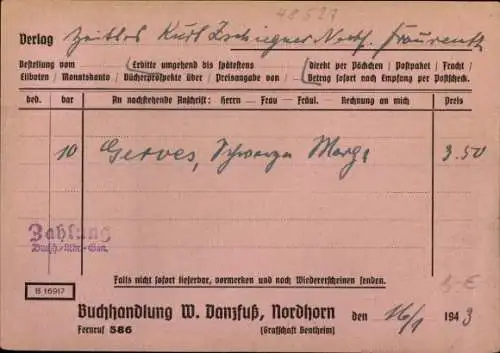 48527
Verlag Zeitlos Kurt Zschiegner Nachf. Fraureuth
Bestellung vom Erbitte umgehend bis spätestens direkt per Päckchen / Postpaket / Fracht
Eilboten / Monatskonto / Bücherprospekte über / Preisangabe von Betrag sofort nach Empfang per Postscheck.
bed. bar An nachstehende Anschrift: Herrn — Frau — Fräul. — Rechnung an mich Preis
10 Gerves, Schwarzer Margs 3.50
Zahlung
Falls nicht sofort lieferbar, vormerken und nach Wiedererscheinen senden.
B 16917
Buchhandlung W. Vanzfuß, Nordhorn den 16/1 1943
Fernruf 586 (Grafschaft Bentheim)